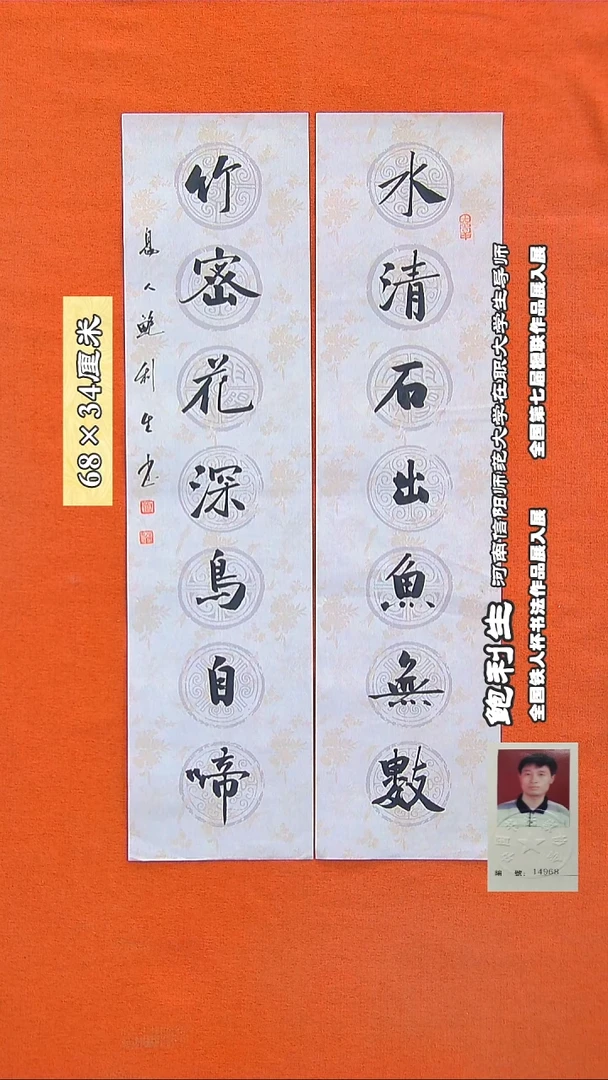 水清石出魚無數
竹密花深鳥自啼
息人鲍利生书
68×34厘米
鲍利生 河南信阳师范大学在职大学生导师
全国铁人杯书法作品展入展 全国第七届楹联作品展入展
編 號：14968